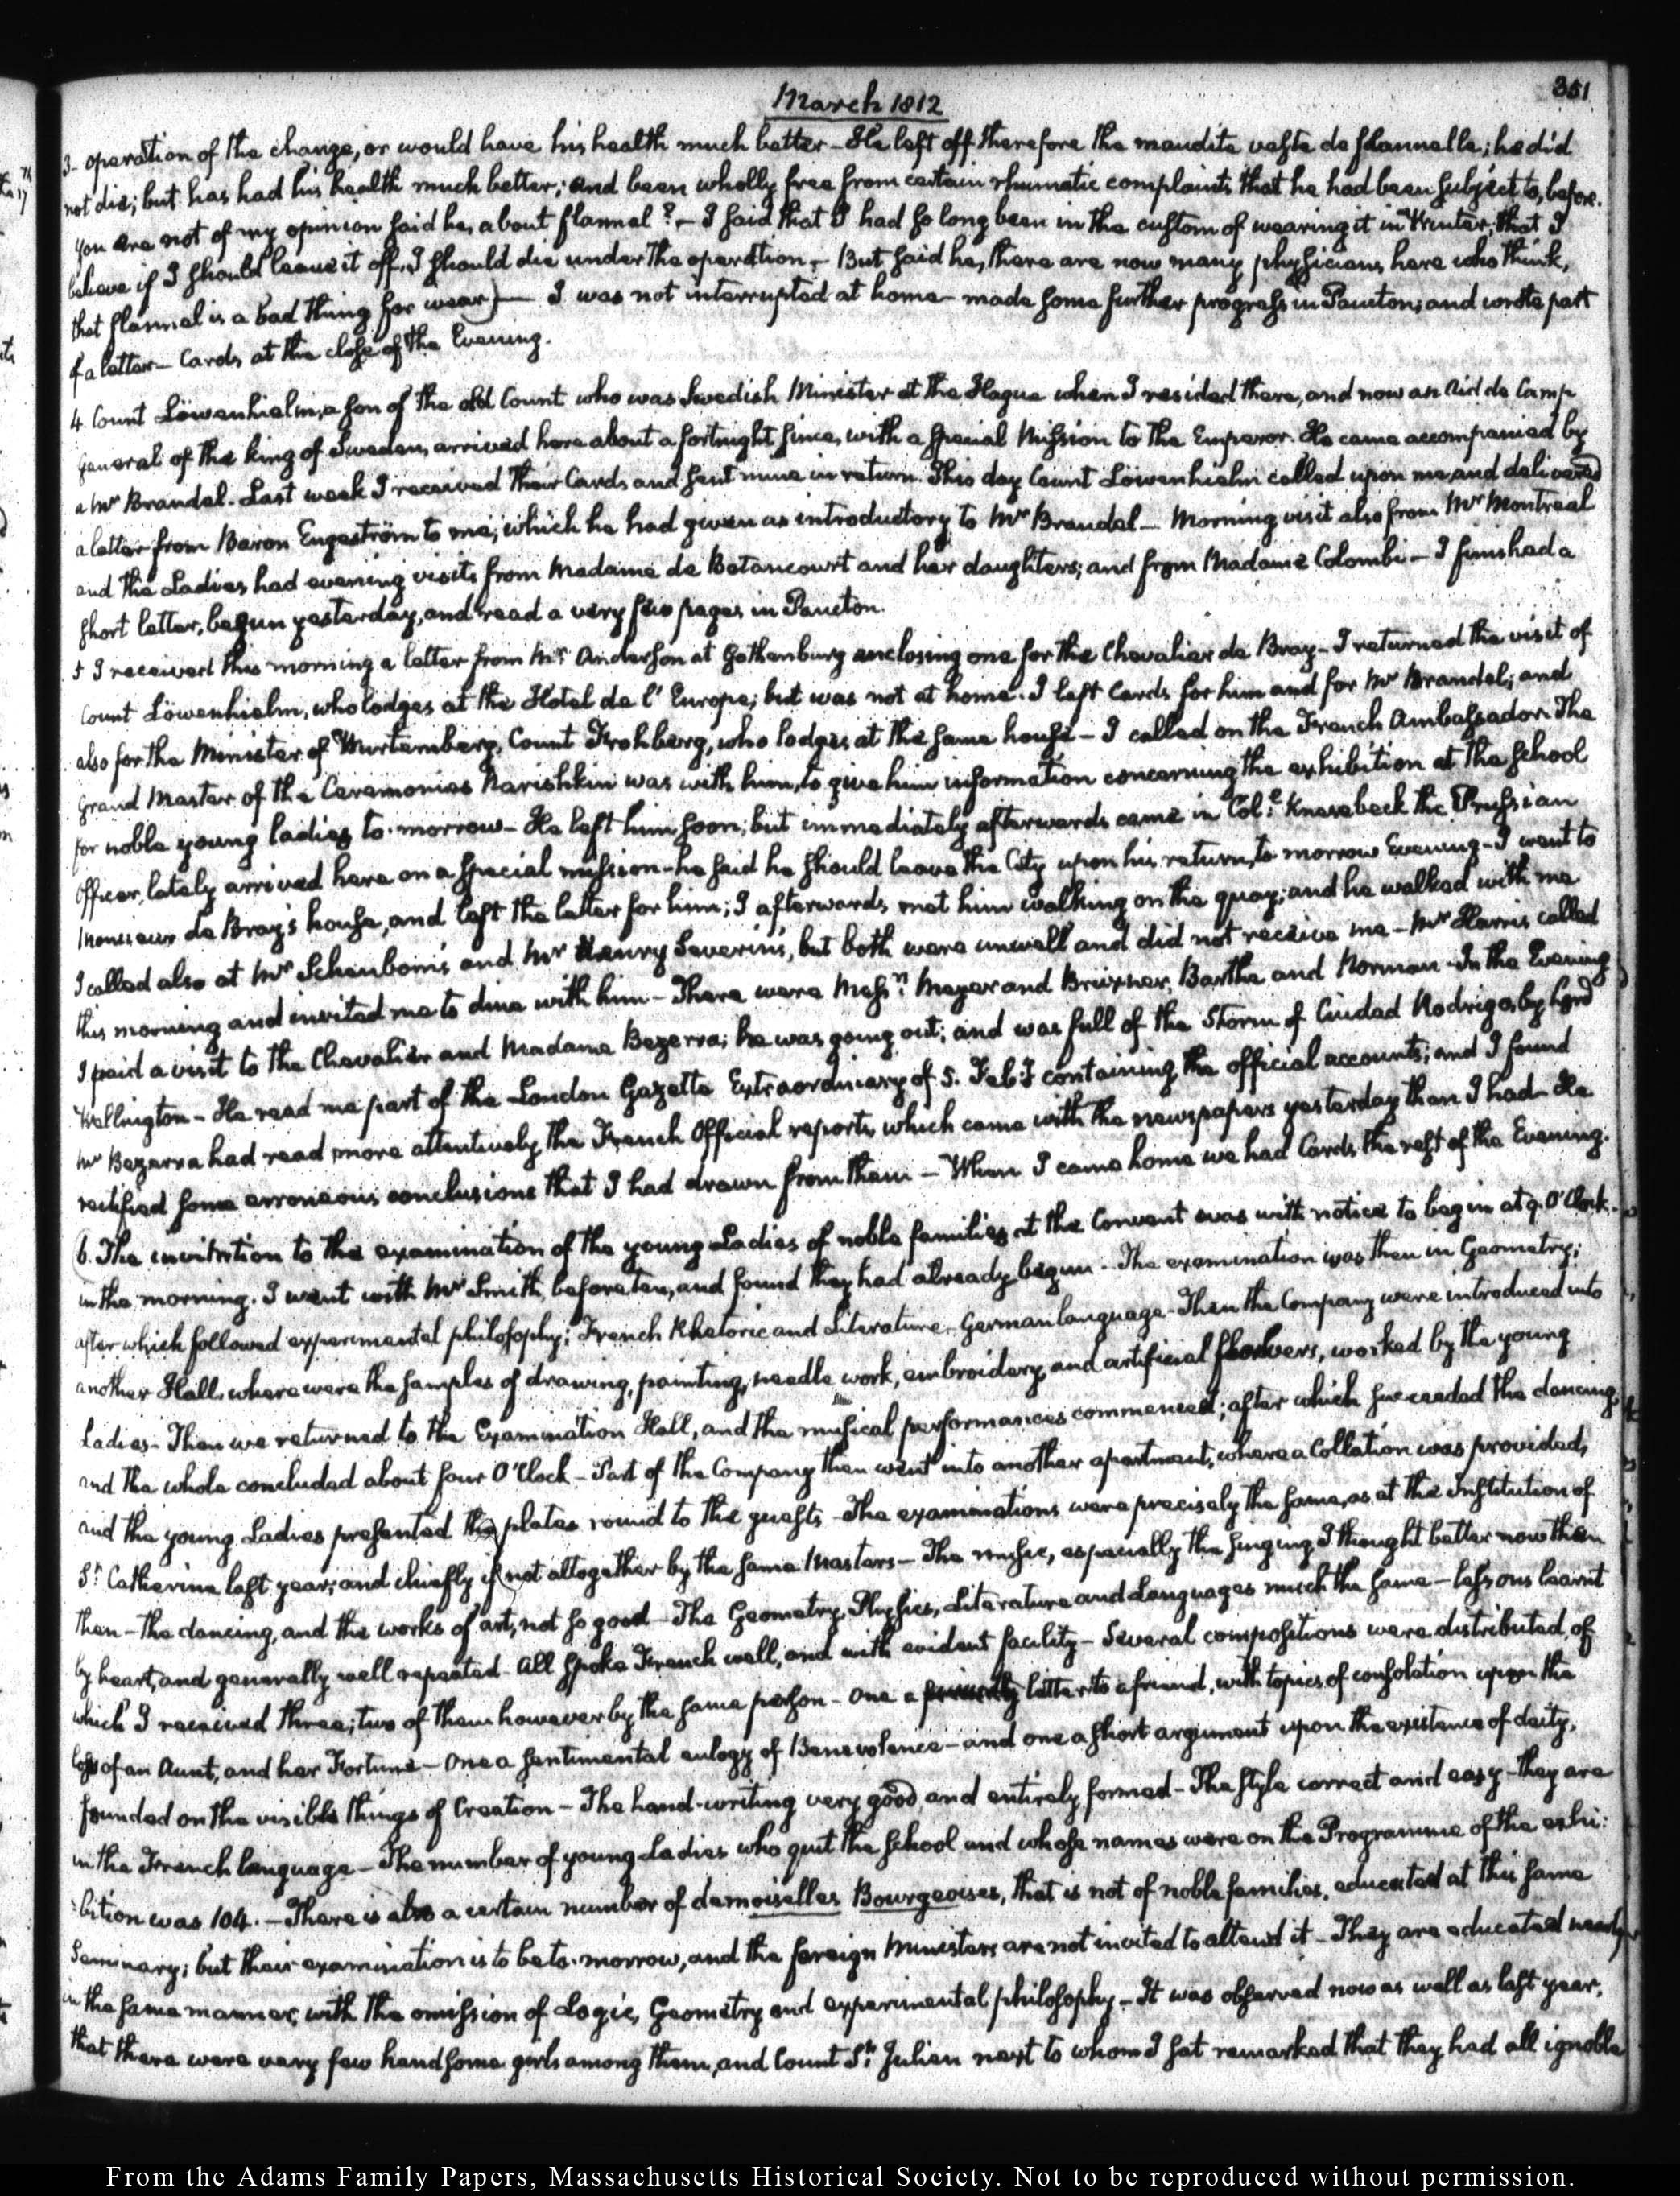 March 1812
351
3. operation of the change, or would have his health much better — He left off therefore the maudite veste de flannelle; he did
not die; but has had his health much better; and been wholly free from certain rhumatic complaints that he had been subject to, before.
You are not of my opinion said he, about flannel? — I said that I had so long been in the custom of wearing it in Winter, that I
believe if I should leave it off, I should die under the operation. — But said he, there are now many physicians here who think,
that flannel is a bad thing for wear) — I was not interrupted at home — made some further progress in Paucton; and wrote part
of a letter — Cards at the close of the Evening.
4. Count Löwenhielm, a son of the old Count who was Swedish Minister at the Hague when I resided there, and now an Aid de Camp
General of the king of Sweden, arrived here about a fortnight since, with a special Mission to the Emperor. He came accompanied by
a Mr Brandel. Last week I received their Cards and sent mine in return. This day Count Löwenhielm called upon me and delivered
a letter from Baron Engeström to me, which he had given as introductory to Mr Brandel — Morning visit also from Mr Montreal
and the Ladies had evening visits from Madame de Betancourt and her daughters; and from Madame Colombi — I finished a
short letter, begun yesterday, and read a very few pages in Paucton.
5 I received this morning a letter from Mr Anderson at Gothenburg enclosing one for the Chevalier de Bray — I returned the visit of
Count Löwenhielm, who lodges at the Hotel de l'Europe; but was not at home. I left Cards for him and for Mr Brandel; and
also for the Minister of Wurtemberg, Count Frohberg, who lodges at the same house — I called on the French Ambassador. The
Grand Master of the Ceremonies Narishkin was with him, to give him information concerning the exhibition at the School
for noble young ladies to-morrow — He left him soon; but immediately afterwards came in Coll Knesebeck the Prussian
Officer, lately arrived here on a special mission — he said he should leave the City upon his return, to morrow Evening — I went to
Monsieur de Bray's house, and left the letter for him; I afterwards met him walking on the quay; and he walked with me
I called also at Mr Schenbom's and Mr Henry Severin's, but both were unwell and did not receive me — Mr Harris called
this morning and invited me to dine with him — There were Messrs Meyer and Brixner, Barthe and Norman — In the Evening
I paid a visit to the Chevalier and Madame Bezerra; he was going out; and was full of the Storm of Ciudad Rodrigo, by Lord
Wellington — He read me part of the London Gazette Extraordinary of 5. Feby containing the official accounts; and I found
Mr Bezerra had read more attentively the French Official reports which came with the newspapers yesterday than I had — He
rectified some erroneous conclusions that I had drawn from them — When I came home we had Cards the rest of the Evening.
6. The invitation to the examination of the young Ladies of noble families at the Convent was with notice to begin at 9. O'Clock
in the morning. I went with Mr Smith, before ten, and found they had already begun. The examination was then in Geometry;
after which followed experimental philosophy; French Rhetoric and Literature — German language — Then the Company were introduced into
another Hall, where were the samples of drawing, painting, needle work, embroidery, and artificial flowers, worked by the young
Ladies — Then we returned to the Examination Hall, and the musical performances commenced; after which succeeded the dancing,
and the whole concluded about four O'Clock — Part of the Company then went into another apartment, where a Collation was provided,
and the young Ladies presented the plates round to the guests — The examinations were precisely the same, as at the Institution of
St Catherine last year; and chiefly if not altogether by the same Masters — The music, especially the singing I thought better now than
then — the dancing, and the works of art, not so good — The Geometry, Physics, Literature and Languages much the same — lessons learnt
by heart, and generally well repeated — All spoke French well, and with evident facility — Several compositions were distributed, of
which I received three; two of them however by the same person — One a letter to a friend, with topics of consolation upon the
loss of an Aunt, and her Fortune — One a sentimental eulogy of Benevolence — and one a short argument upon the existence of deity,
founded on the visible things of Creation — The hand-writing very good, and entirely formed — The style correct and easy — they are
in the French language — The number of young Ladies who quit the School and whose names were on the Programme of the exhi:
:bition was 104. — There is also a certain number of demoiselles Bourgeoises, that is not of noble families, educated at this same
Seminary; but their examination is to be to-morrow, and the foreign Ministers are not invited to attend it — They are educated nearly
in the same manner, with the omission of Logic, Geometry and experimental philosophy — It was observed now as well as last year,
that there were very few handsome girls among them, and Count St Julien next to whom I sat remarked that they had all ignoble
From the Adams Family Papers, Massachusetts Historical Society. Not to be reproduced without permission.